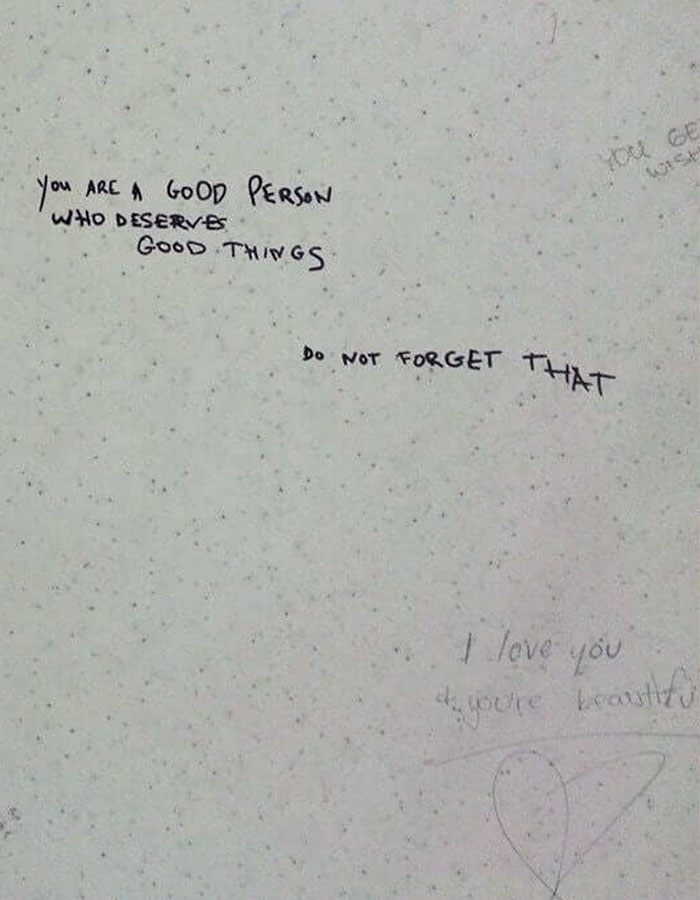 YOU GE
WISH
You ARE A GOOD PERSON
WHO DESERVES
GOOD THINGS
DO NOT FORGET THAT
I love you
& you're beautifu